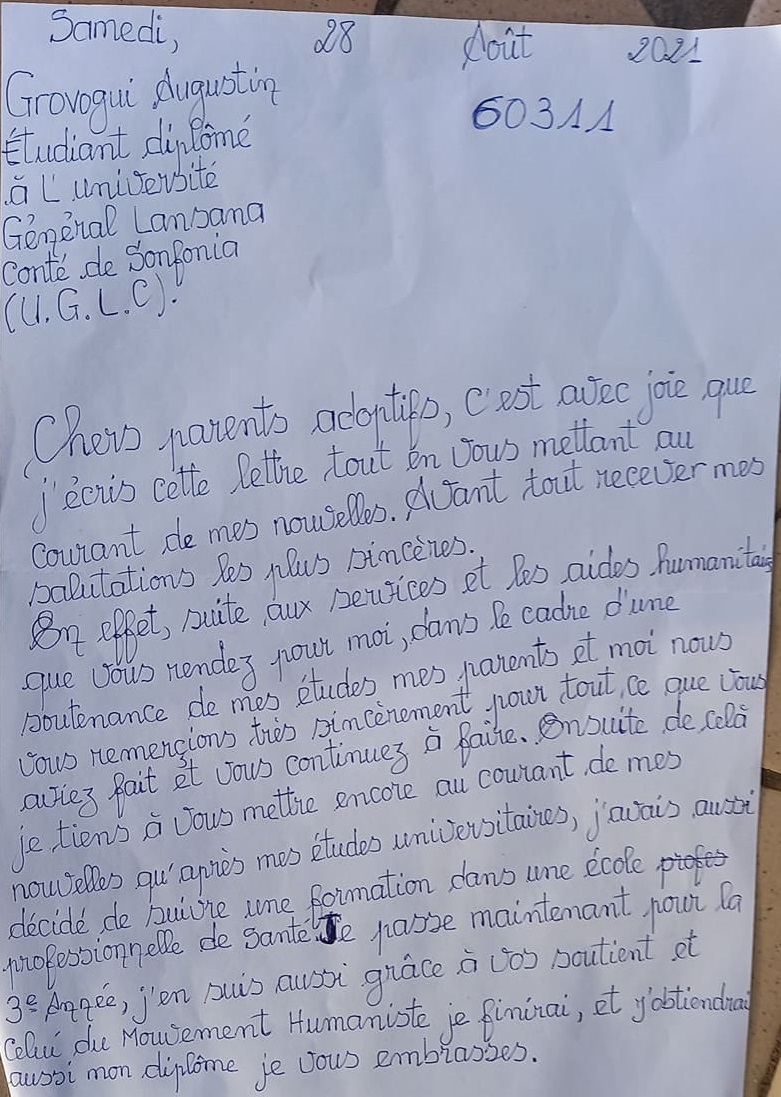 Samedi, 28 Août 2021
Grovogui Augustin
60311
Étudiant diplômé
à L'université
Général Lansana
Conté de Sonfonia
(U.G.L.C).
Chers parents adoptifs, c'est avec joie que
j'écris cette lettre tout en vous mettant au
courant de mes nouvelles. Avant tout recever mes
salutations les plus sincères.
En effet, suite aux services et les aides humanitais
que vous rendez pour moi, dans le cadre d'une
soutenance de mes études mes parents et moi nous
vous remerçions très sincèrement pour tout ce que vous
aviez fait et vous continuez à faire. Ensuite de celà
je tiens à vous mettre encore au courant de mes
nouvelles qu'après mes études universitaires, j'avais aussi
décidé de suivre une formation dans une école profes
professionnelle de santé Je passe maintenant pour la
3e Année, j'en suis aussi grâce à vos soutient et
Celui du Mouvement Humaniste je finirai, et j'obtiendrai
aussi mon diplôme je vous embrasses.